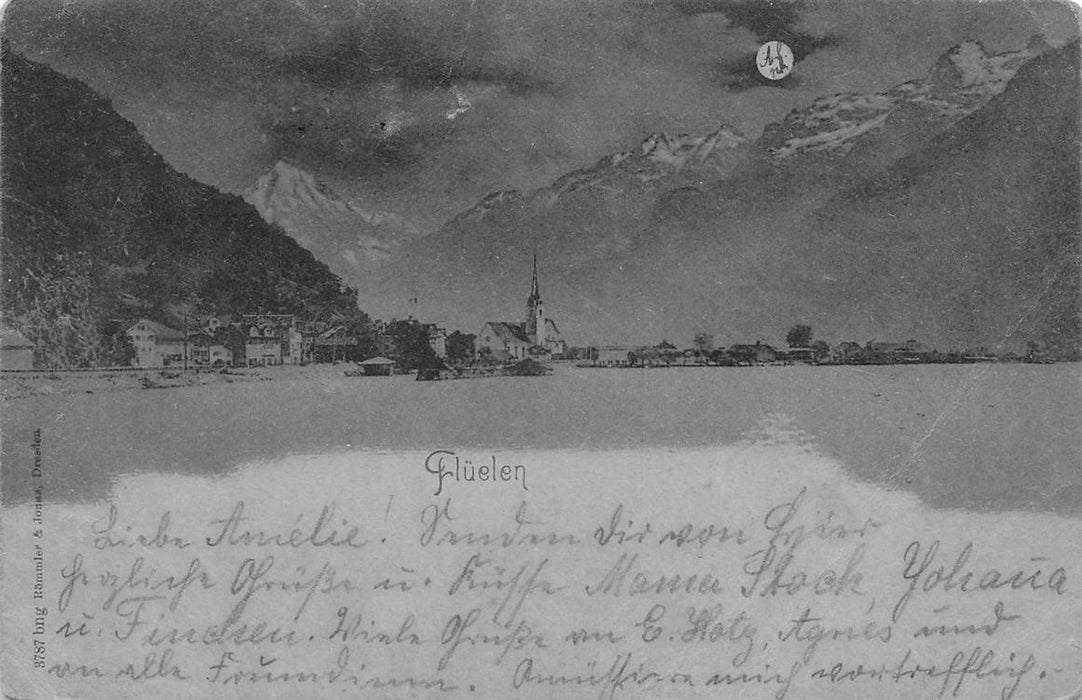 Flüelen
Liebe Amélie! Senden Dir von hier
herzliche Grüße u. Küsse Mama Stock, Johaña
u. Grüße an E. Hotz, Agnes und
an alle Freundinnen. Amüssiere mich vortrefflich.
3787 bng Römmler & Jonas, Dresden